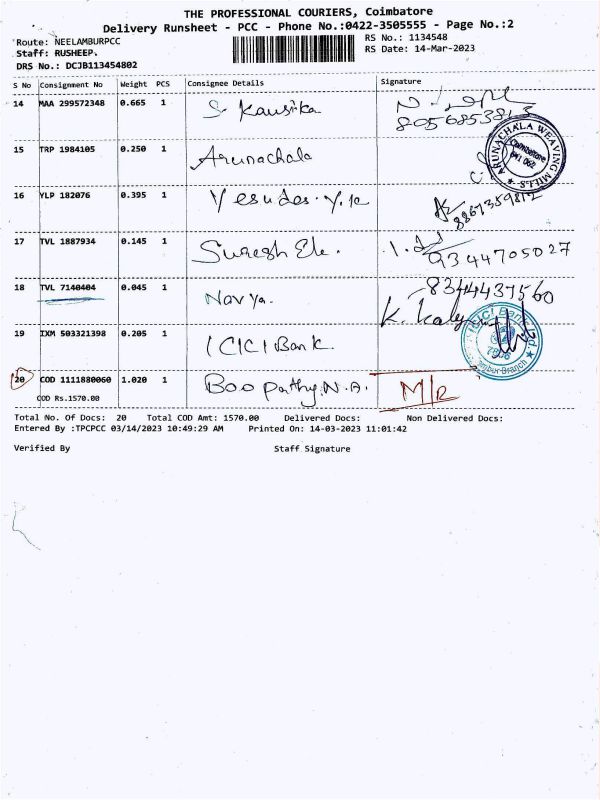 THE PROFESSIONAL COURIERS, Coimbatore
Delivery Runsheet - PCC - Phone No.:0422-3505555 - Page No.:2
Route: NEELAMBURPCC
Staff: RUSHEEP.
DRS No.: DCJB113454802
RS No.: 1134548
RS Date: 14-Mar-2023
S No Consignment No Weight PCS Consignee Details Signature
14 MAA 299572348 0.665 1 S. Kausika
8056853813
15 TRP 1984105 0.250 1 Arunachala
ARUNACHALA WEAVING MILLS
Coimbatore
641 062
16 YLP 182076 0.395 1 Yesudas.Y.K
8867359812
17 TVL 1887934 0.145 1 Suresh Ele.
9344705027
18 TVL 7140404 0.045 1 Navya. 8344437560
19 IXM 503321398 0.205 1 ICICI Bank
ICICI Bank Ltd
Branch
20 COD 1111880060 1.020 1 Boopathy.N.A. M/R
COD Rs.1570.00
Total No. Of Docs: 20 Total COD Amt: 1570.00 Delivered Docs: Non Delivered Docs:
Entered By :TPCPCC 03/14/2023 10:49:29 AM Printed On: 14-03-2023 11:01:42
Verified By Staff Signature